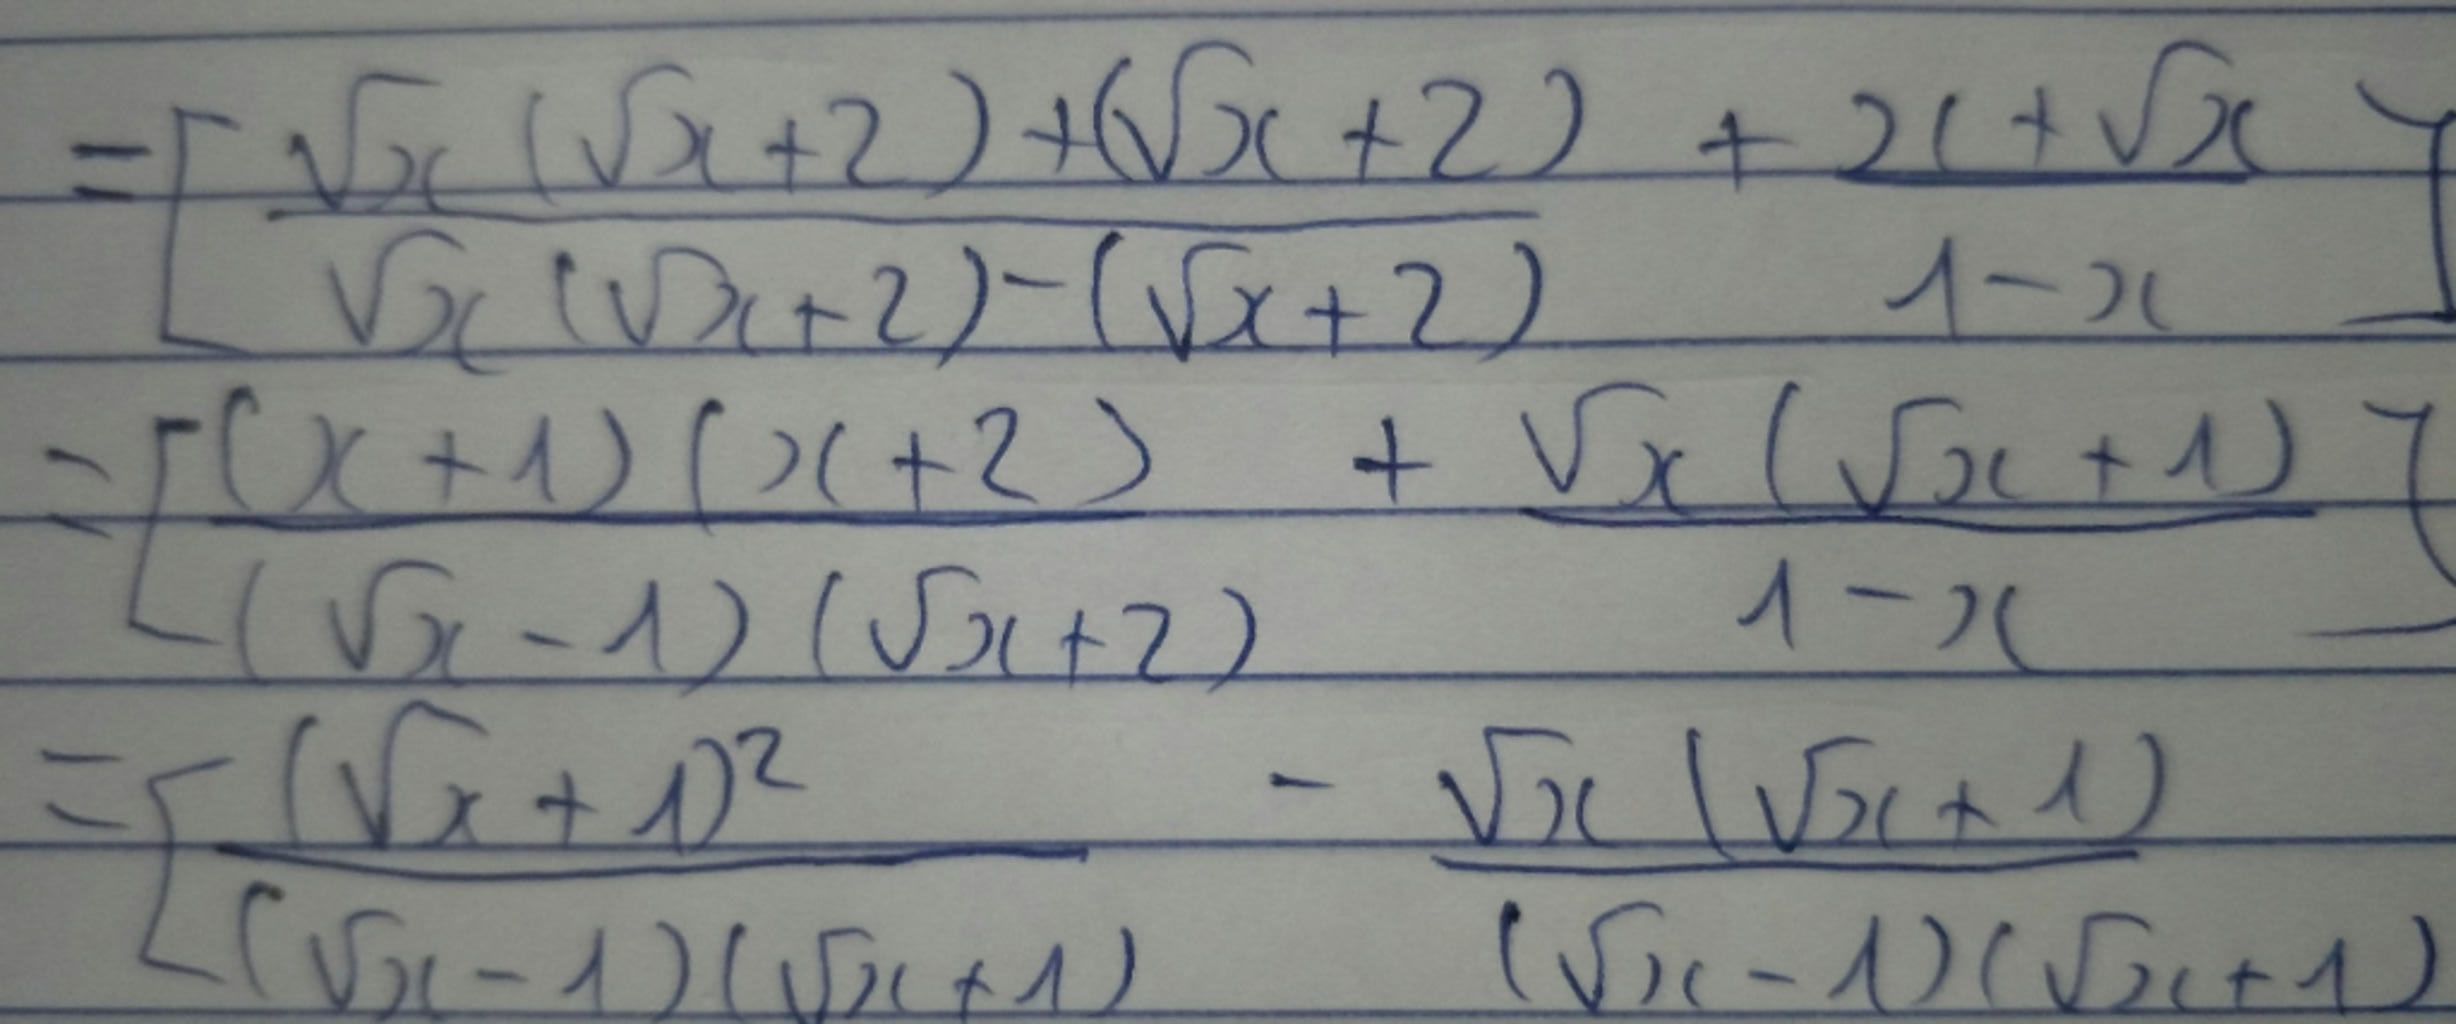 = [ \frac{\sqrt{x}(\sqrt{x}+2)+(\sqrt{x}+2)}{\sqrt{x}(\sqrt{x}+2)-(\sqrt{x}+2)} + \frac{x+\sqrt{x}}{1-x} ]
= [ \frac{(x+1)(x+2)}{(\sqrt{x}-1)(\sqrt{x}+2)} + \frac{\sqrt{x}(\sqrt{x}+1)}{1-x} ]
= [ \frac{(\sqrt{x}+1)^2}{(\sqrt{x}-1)(\sqrt{x}+1)} - \frac{\sqrt{x}(\sqrt{x}+1)}{(\sqrt{x}-1)(\sqrt{x}+1)}